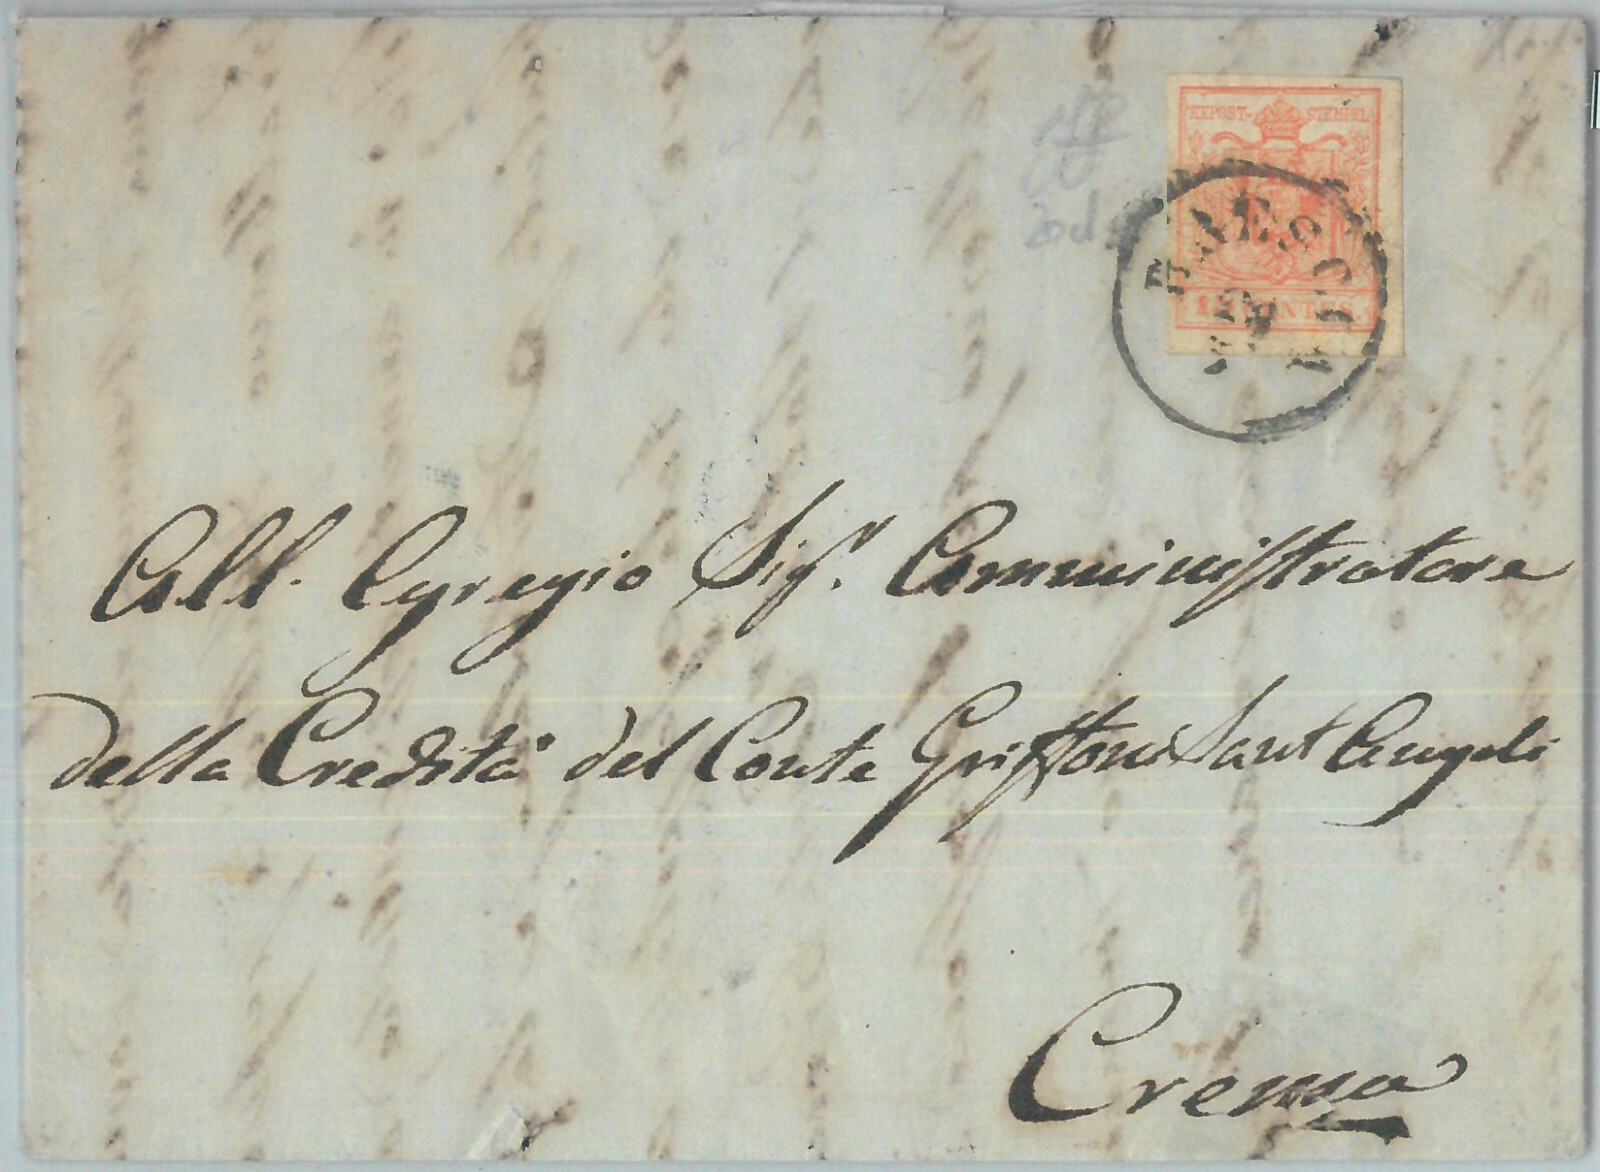 KKPOST-STEMPEL
15 CENTES.
All. Egregio Sigr. Amministratore
della Credità del Conte Griffoni Sant Angeli
Crema